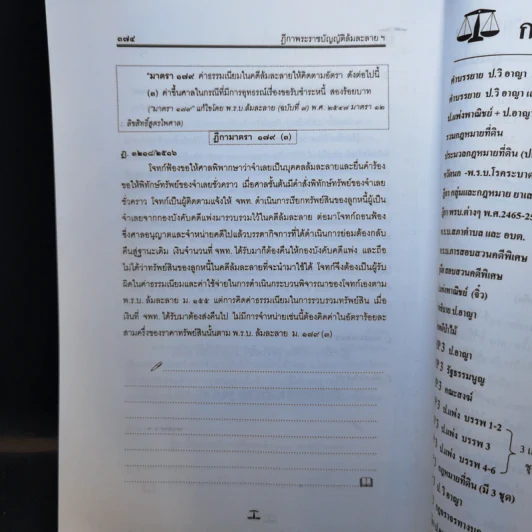 ๑๗๔ ฎีกาพระราชบัญญัติล้มละลาย ฯ
"มาตรา ๑๗๙ ค่าธรรมเนียมในคดีล้มละลายให้คิดตามอัตรา ดังต่อไปนี้
(๓) ค่าขึ้นศาลในกรณีที่มีการอุทธรณ์เรื่องขอรับชำระหนี้ สองร้อยบาท
("มาตรา ๑๗๙" แก้ไขโดย พ.ร.บ.ล้มละลาย (ฉบับที่ ๗) พ.ศ. ๒๕๔๗ มาตรา ๑๒
ลิขสิทธิ์สูตรไพศาล)
ฎีกามาตรา ๑๗๙ (๓)
ฎ. ๑๒๑๘/๒๕๑๖
โจทก์ฟ้องขอให้ศาลพิพากษาว่าจำเลยเป็นบุคคลล้มละลายและยื่นคำร้อง
ขอให้พิทักษ์ทรัพย์ของจำเลยชั่วคราว เมื่อศาลชั้นต้นมีคำสั่งพิทักษ์ทรัพย์ของจำเลย
ชั่วคราว โจทก์เป็นผู้ติดตามแจ้งให้ จพท. ดำเนินการเรียกทรัพย์สินของลูกหนี้ผู้เป็น
จำเลยจากกองบังคับคดีแพ่งมารวบรวมไว้ในคดีล้มละลาย ต่อมาโจทก์ถอนฟ้อง
ซึ่งศาลอนุญาตและจำหน่ายคดีไปแล้วบรรดากิจการที่ได้ดำเนินการย่อมต้องกลับ
คืนสู่ฐานะเดิม เงินจำนวนที่ จพท. ได้รับมาก็ต้องคืนให้กองบังคับคดีแพ่ง และถือ
ไม่ได้ว่าทรัพย์สินของลูกหนี้ในคดีล้มละลายที่จะนำมาใช้ได้ โจทก์จึงต้องเป็นผู้รับ
ผิดในค่าธรรมเนียมและค่าใช้จ่ายในการดำเนินกระบวนพิจารณาของโจทก์เองตาม
พ.ร.บ. ล้มละลาย ม. ๑๕๕ แต่การคิดค่าธรรมเนียมในการรวบรวมทรัพย์สิน เมื่อ
เงินที่ จพท. ได้รับมาต้องส่งคืนไป ไม่มีการจำหน่ายเช่นนี้ต้องคิดค่าในอัตราร้อยละ
สามครึ่งของราคาทรัพย์สินนั้นตาม พ.ร.บ. ล้มละลาย ม. ๑๗๙ (๓)
ก
คำบรรยาย ป.วิ อาญา
คำบรรยาย ป.วิ อาญา
ป.แพ่งพาณิชย์ + ป.อาญา
รวมกฎหมายที่ดิน
ประมวลกฎหมายที่ดิน
พ.ร.บ.โรคระบาด
พรบ.ต่างๆ พ.ศ.2465-25
สภาตำบล และ อบต.
การสอบสวนคดีพิเศษ
สอบสวนคดีพิเศษ
แพ่งพาณิชย์ (จิ๋ว)
3 ป.อาญา
3 รัฐธรรมนูญ
3 คณะสงฆ์
3 ป.แพ่ง บรรพ 1-2
3 ป.แพ่ง บรรพ 3
3 ป.แพ่ง บรรพ 4-6
กฎหมายที่ดิน (มี 3 ชุด)
ป.วิ อาญา